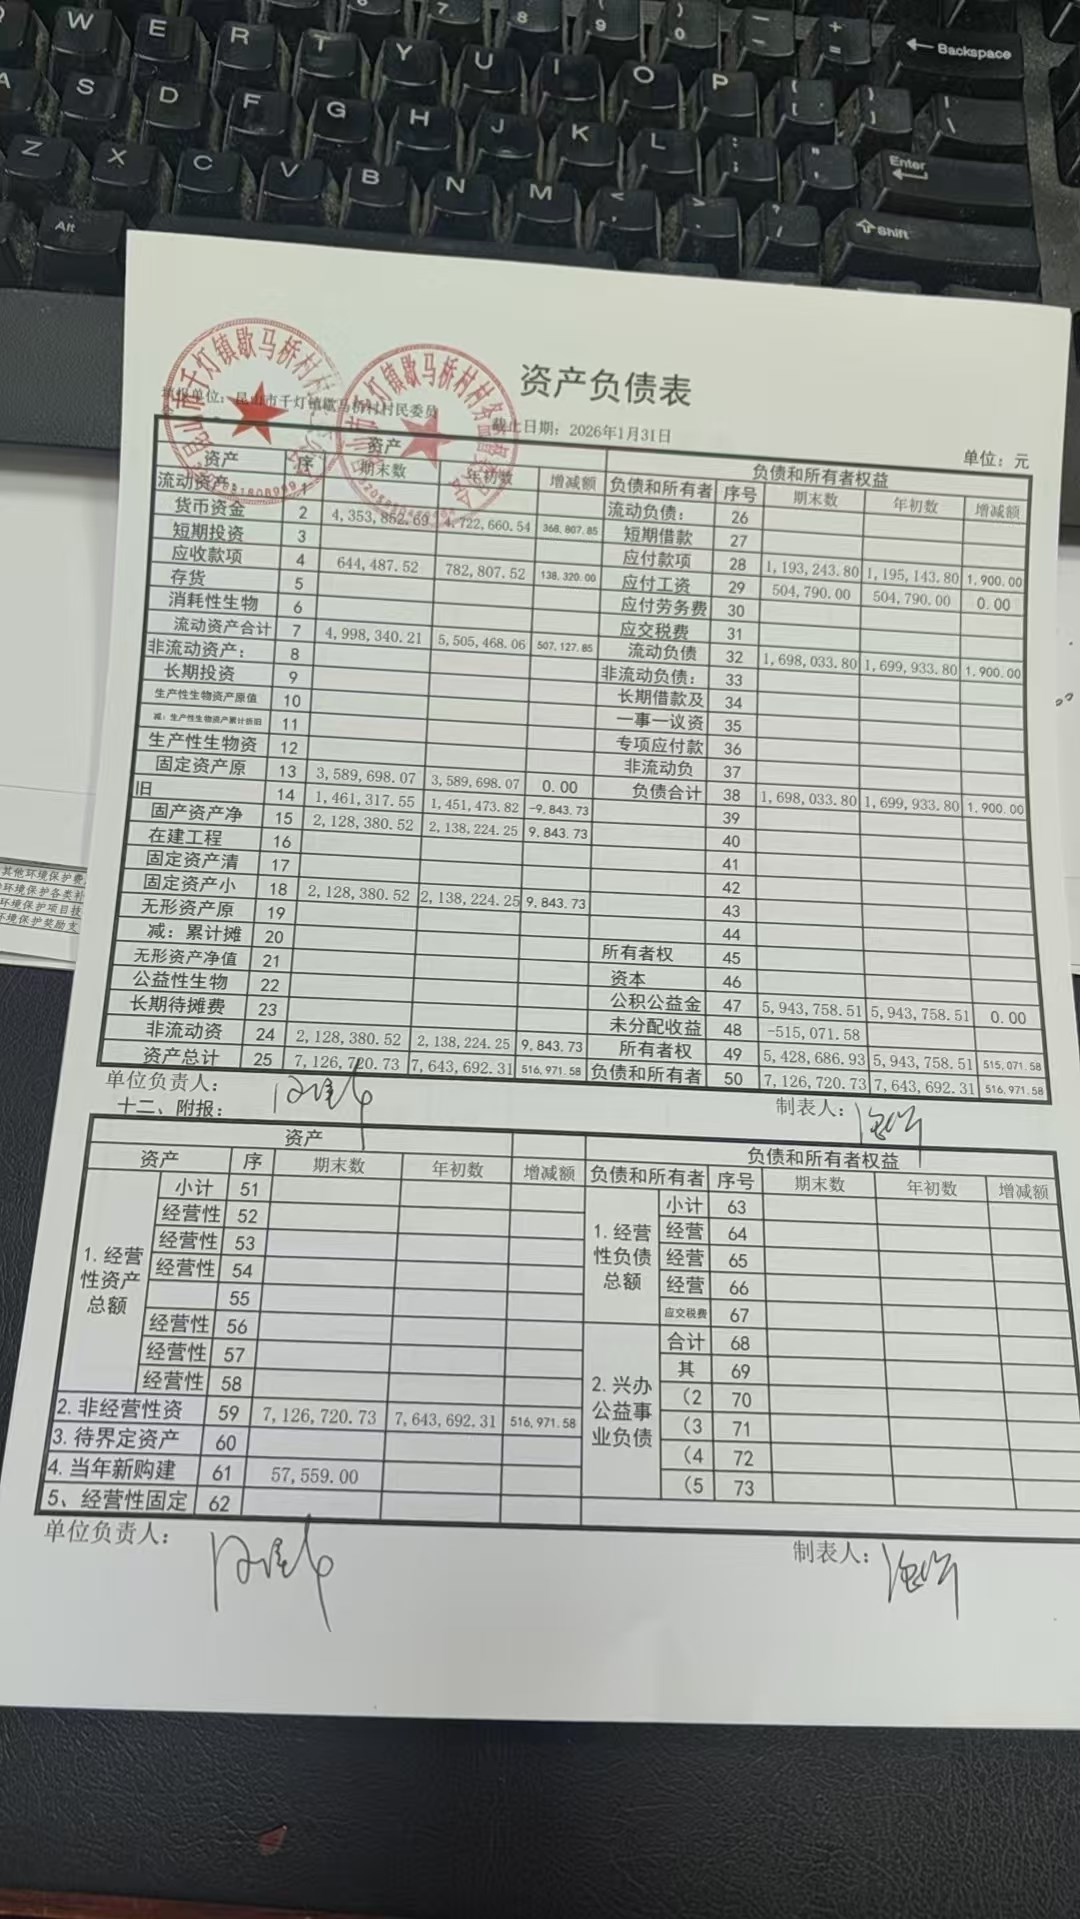 W E R T Y U I O P Backspace
A S D F G H J K L Enter
Z X C V B N M Shift
Alt
资产负债表
填报单位：昆山市千灯镇歇马桥村村民委员
截止日期：2026年1月31日
单位：元
资产 负债和所有者权益
资产 序 期末数 年初数 增减额 负债和所有者 序号 期末数 年初数 增减额
流动资产： 1 流动负债： 26
货币资金 2 4,353,852.69 4,722,660.54 368,807.85 短期借款 27
短期投资 3 应付款项 28 1,193,243.80 1,195,143.80 1,900.00
应收款项 4 644,487.52 782,807.52 138,320.00 应付工资 29 504,790.00 504,790.00 0.00
存货 5 应付劳务费 30
消耗性生物 6 应交税费 31
流动资产合计 7 4,998,340.21 5,505,468.06 507,127.85 流动负债 32 1,698,033.80 1,699,933.80 1,900.00
非流动资产： 8 非流动负债： 33
长期投资 9 长期借款及 34
生产性生物资产原值 10 一事一议资 35
减：生产性生物资产累计折旧 11 专项应付款 36
生产性生物资 12 非流动负 37
固定资产原 13 3,589,698.07 3,589,698.07 0.00 负债合计 38 1,698,033.80 1,699,933.80 1,900.00
旧 14 1,461,317.55 1,451,473.82 -9,843.73 39
固产资产净 15 2,128,380.52 2,138,224.25 9,843.73 40
在建工程 16 41
固定资产清 17 42
固定资产小 18 2,128,380.52 2,138,224.25 9,843.73 43
无形资产原 19 44
减：累计摊 20 所有者权 45
无形资产净值 21 资本 46
公益性生物 22 公积公益金 47 5,943,758.51 5,943,758.51 0.00
长期待摊费 23 未分配收益 48 -515,071.58
非流动资 24 2,128,380.52 2,138,224.25 9,843.73 所有者权 49 5,428,686.93 5,943,758.51 515,071.58
资产总计 25 7,126,720.73 7,643,692.31 516,971.58 负债和所有者 50 7,126,720.73 7,643,692.31 516,971.58
单位负责人： 制表人：
十二、附报：
资产 负债和所有者权益
资产 序 期末数 年初数 增减额 负债和所有者 序号 期末数 年初数 增减额
1.经营性资产总额 小计 51 1.经营性负债总额 小计 63
经营性 52 经营 64
经营性 53 经营 65
经营性 54 经营 66
55 应交税费 67
经营性 56 2.兴办公益事业负债 合计 68
经营性 57 其 69
经营性 58 (2 70
2.非经营性资 59 7,126,720.73 7,643,692.31 516,971.58 (3 71
3.待界定资产 60 (4 72
4.当年新购建 61 57,559.00 (5 73
5、经营性固定 62
单位负责人： 制表人：
其他环境保护费
环境保护各类补
环境保护项目技
环境保护奖励支